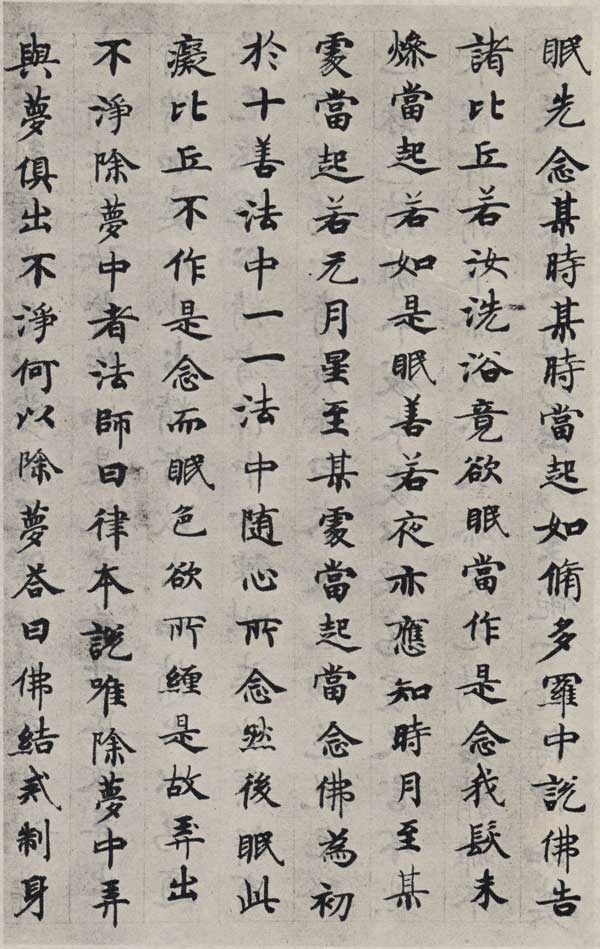 眠先念某時某時當起如脩多羅中説佛告
諸比丘若汝洗浴竟欲眠當作是念我髮未
燥當起若如是眠善若夜亦應知時月至某
䖏當起若无月星至某䖏當起當念佛為初
於十善法中一一法中随心所念然後眠此
癡比丘不作是念而眠色欲所纏是故弄出
不淨除夢中者法師曰律本説唯除夢中弄
與夢俱出不淨何以除夢荅曰佛結戒制身